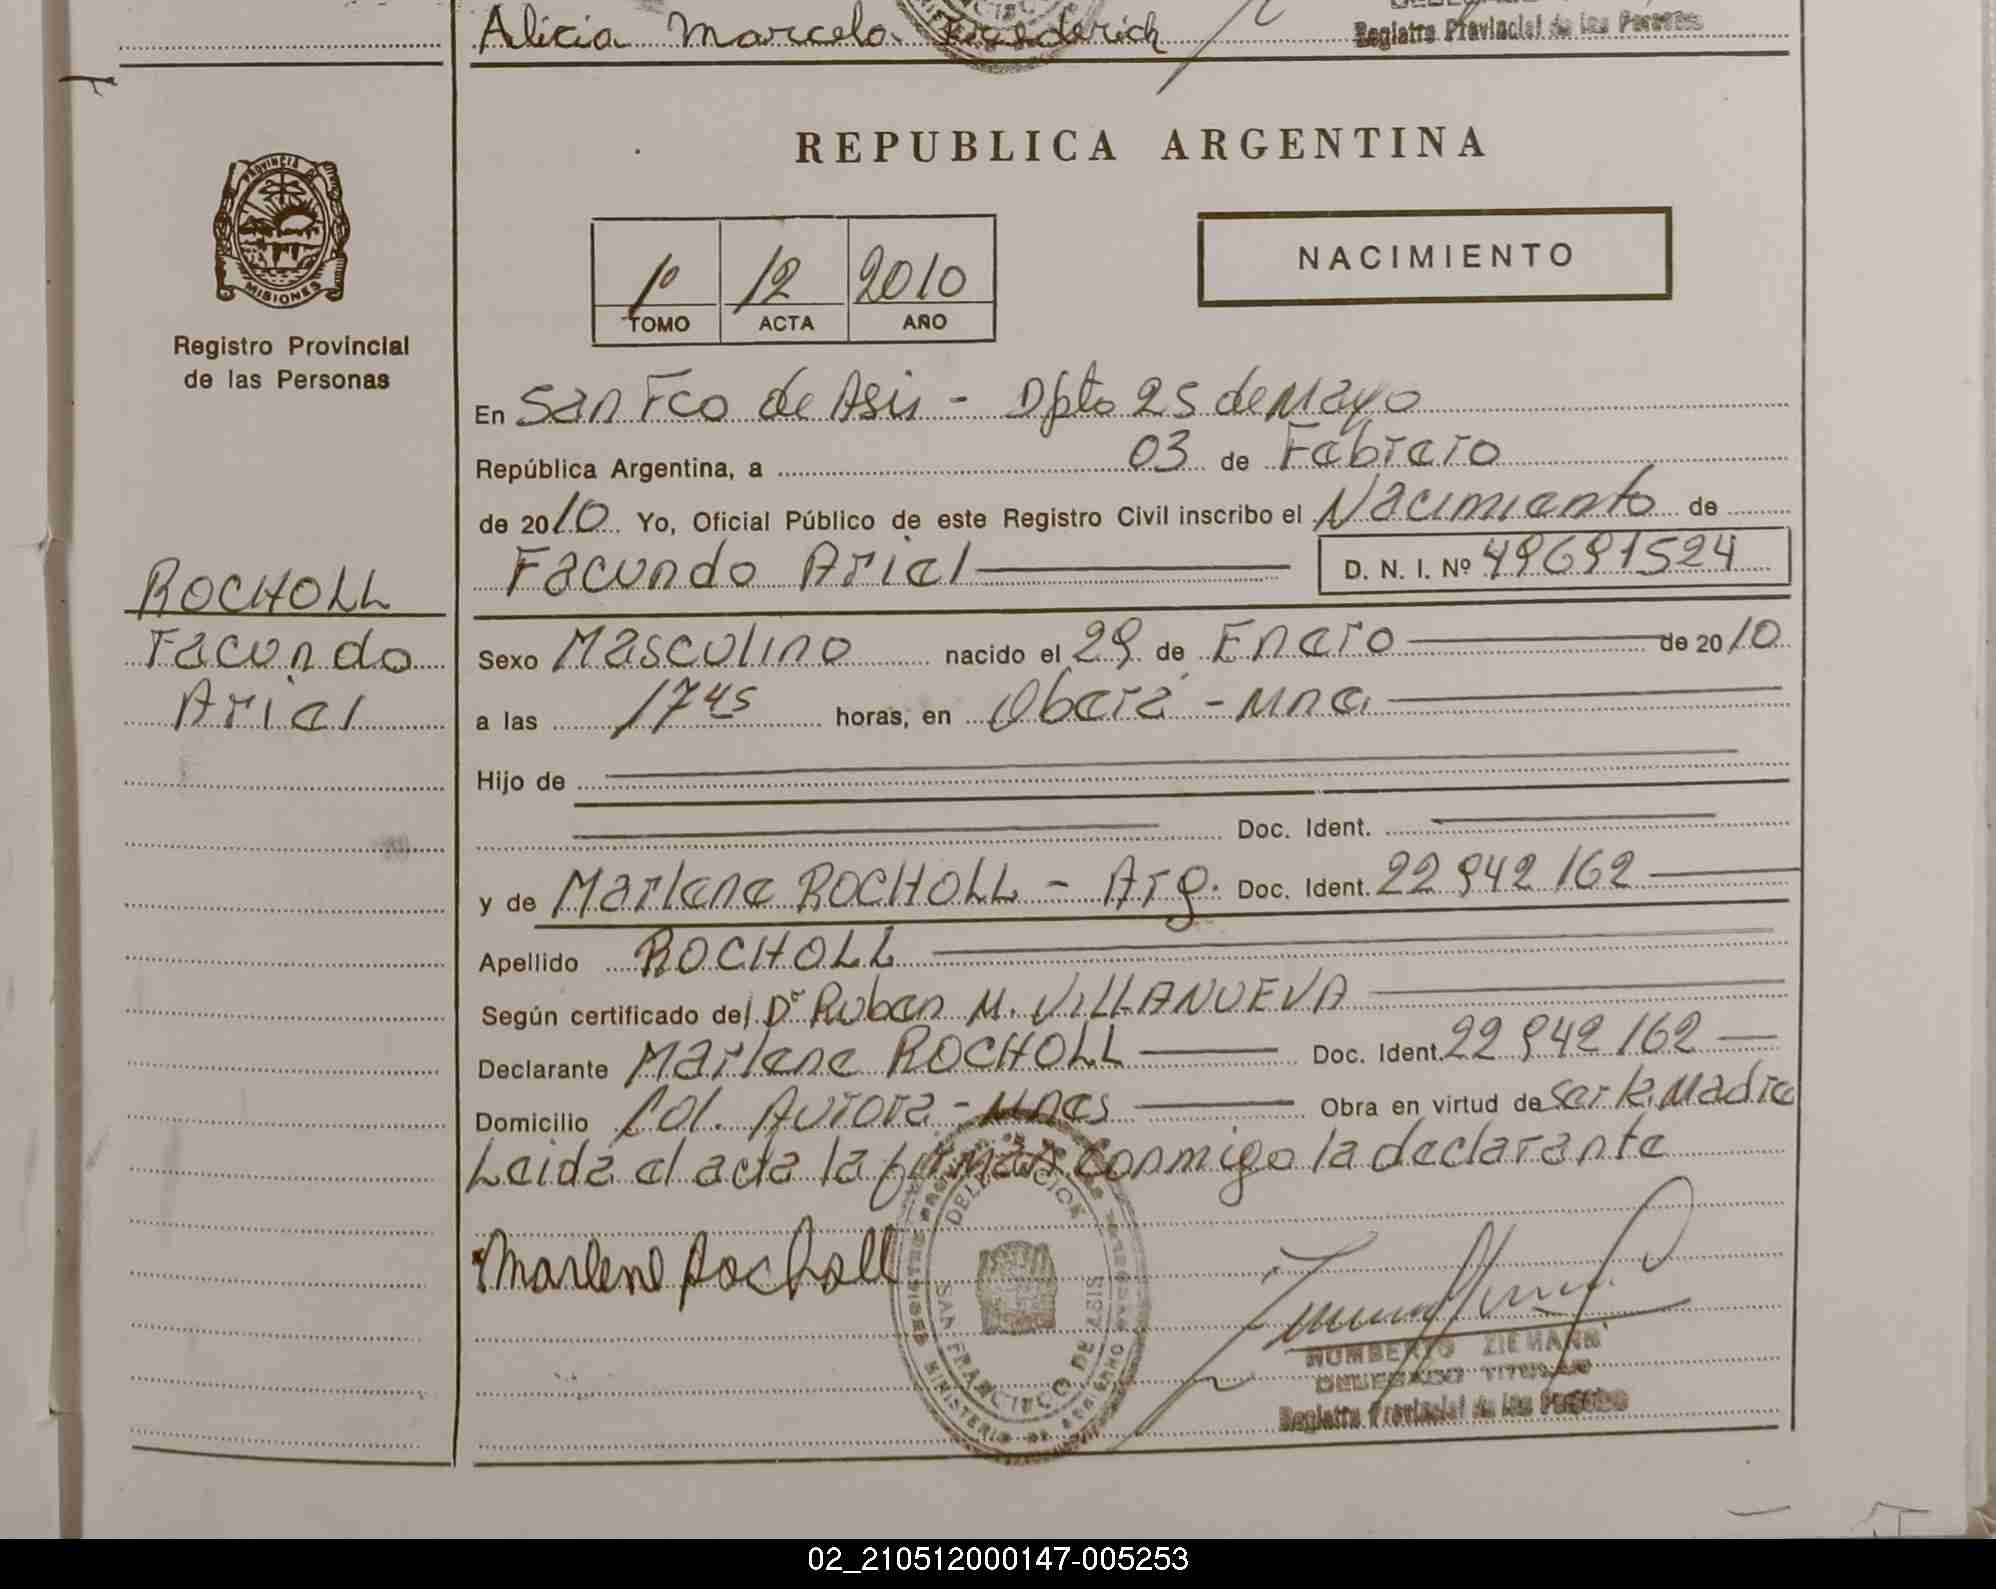 Alicia Marcela
Registro Provincial de las Personas
REPUBLICA ARGENTINA
PROVINCIA DE
MISIONES
Registro Provincial
de las Personas
1º 12 2010
TOMO ACTA AÑO
NACIMIENTO
En San Fco de Asis - Dpto 25 de Mayo
República Argentina, a 03 de Febrero
de 2010 Yo, Oficial Público de este Registro Civil inscribo el Nacimiento de
Facundo Ariel D. N. I. Nº 49691524
ROCHOLL
Facundo
Ariel
Sexo Masculino nacido el 29 de Enero de 2010
a las 17 45 horas, en Oberá - Mnes
Hijo de
Doc. Ident.
y de Marlene ROCHOLL - Arg. Doc. Ident. 22 942 162
Apellido ROCHOLL
Según certificado del Dr Ruben M. VILLANUEVA
Declarante Marlene ROCHOLL Doc. Ident. 22 942 162
Domicilio Col. Aurora - Mnes Obra en virtud de ser la Madre
Leída el acta la firman conmigo la declarante
Marlene Rocholl
DELEGACION
SAN FRANCISCO DE ASIS
HUMBERTO ZIEMANN
DELEGADO TITULAR
Registro Provincial de las Personas
02_210512000147-005253